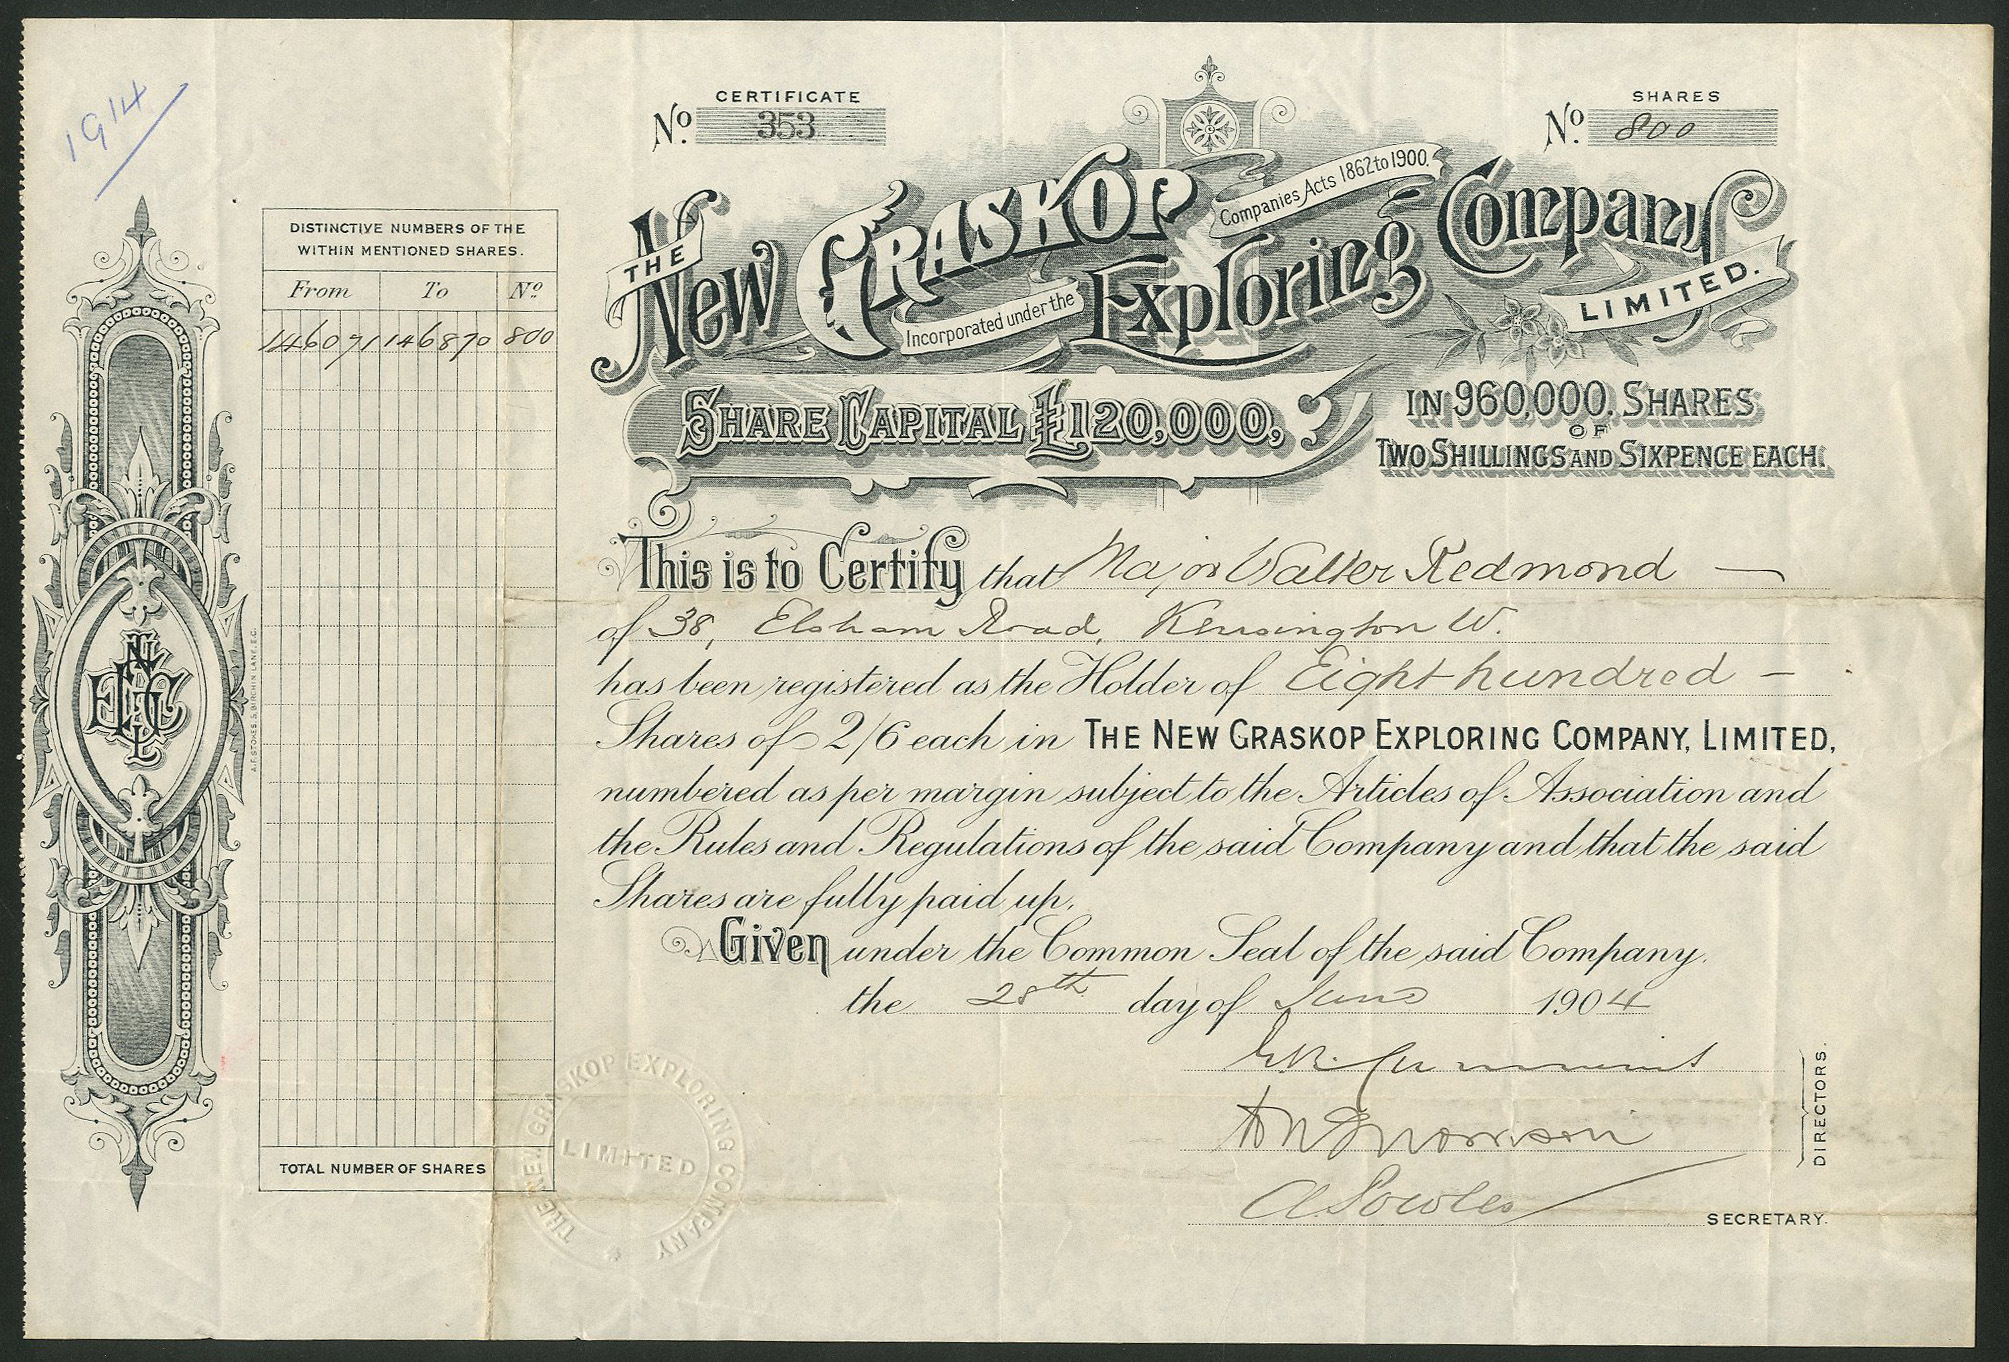 1914
CERTIFICATE
No 353
SHARES
No 800
THE New GRASKOP Exploring Company LIMITED.
Incorporated under the Companies Acts 1862 to 1900.
SHARE CAPITAL £120,000,
IN 960,000. SHARES
OF
TWO SHILLINGS AND SIXPENCE EACH.
DISTINCTIVE NUMBERS OF THE
WITHIN MENTIONED SHARES.
From To No
146071 146870 800
TOTAL NUMBER OF SHARES
This is to Certify that Major Walter Redmond
of 38, Elsham Road, Kensington W.
has been registered as the Holder of Eight hundred
Shares of 2/6 each in THE NEW GRASKOP EXPLORING COMPANY, LIMITED,
numbered as per margin subject to the Articles of Association and
the Rules and Regulations of the said Company and that the said
Shares are fully paid up.
Given under the Common Seal of the said Company.
the 28th day of June 1904
DIRECTORS.
SECRETARY.
THE NEW GRASKOP EXPLORING COMPANY
LIMITED